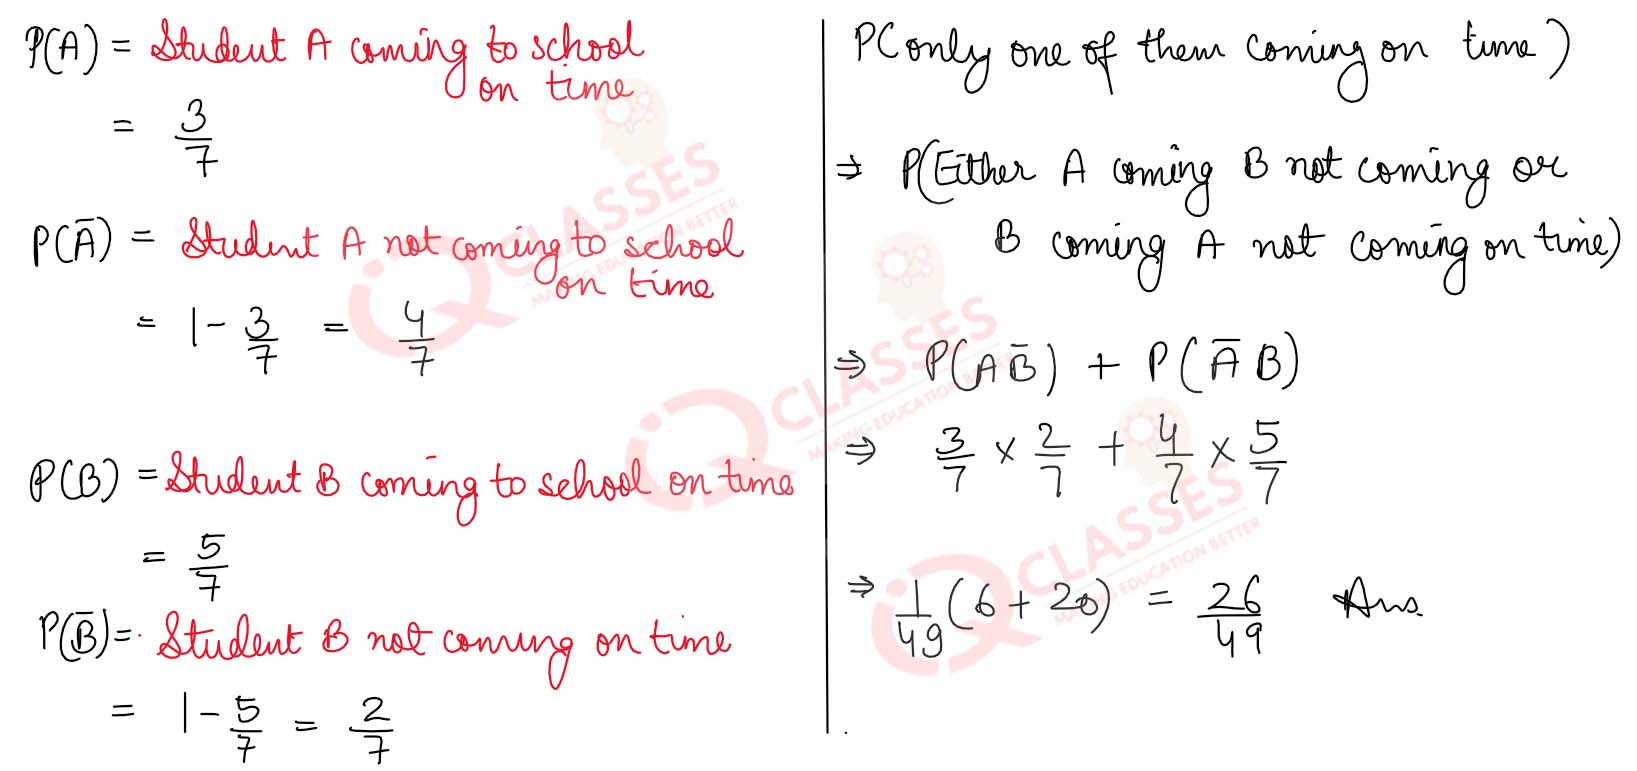 P(A) = Student A coming to school
on time
= 3/7
P(A̅) = Student A not coming to school
on time
= 1 - 3/7 = 4/7
P(B) = Student B coming to school on time
= 5/7
P(B̅) = Student B not coming on time
= 1 - 5/7 = 2/7
P(only one of them coming on time)
⇒ P(Either A coming B not coming or
B coming A not coming on time)
⇒ P(AB̅) + P(A̅B)
⇒ 3/7 × 2/7 + 4/7 × 5/7
⇒ 1/49 (6 + 20) = 26/49 Ans
iQ CLASSES
MAKING EDUCATION BETTER
iQ CLASSES
MAKING EDUCATION BETTER
iQ CLASSES
MAKING EDUCATION BETTER